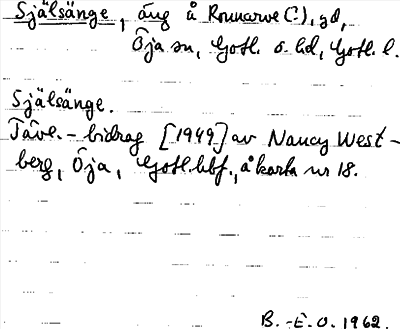 Själsänge, äng å Ronnarve (?), gd,
Öja sn, Gotl. s. hd, Gotl. l.
Själsänge.
Tävl.-bidrag [1949] av Nancy West-
berg, Öja, Gotl. hbf., å karta nr 18.
B.-E.O. 1962.